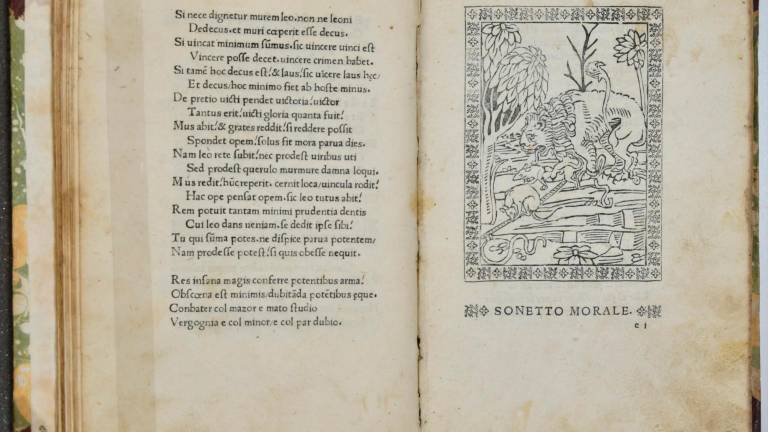 Si nece dignetur murem leo. non ne leoni
Dedecus. et muri cœperit esse decus.
Si uincat minimum sũmus. sic uincere uinci est
Vincere posse decet. uincere crimen habet.
Si tamẽ hoc decus est. & laus. sic uĩcere laus hęc
Et decus/hoc minimo fiet ab hoste minus.
De pretio uicti pendet uictoria. uictor
Tantus erit. uicti gloria quanta fuit.
Mus abit. & grates reddit. si reddere possit
Spondet opem. solus fit mora parua dies.
Nam leo rete subit. nec prodest uiribus uti
Sed prodest querulo murmure damna loqui.
Mus redit. hũc reperit. cernit loca/uincula rodit.
Hac ope pensat opem. sic leo tutus abit.
Rem potuit tantam minimi prudentia dentis
Cui leo dans ueniam. se dedit ipse sibi.
Tu qui sũma potes. ne dispice parua potentem/
Nam prodesse potest. si quis obesse nequit.
Res insana magis conferre potentibus arma.
Obscœna est minimis/dubitãda potẽtibus ęque.
Conbater col mazor e mato studio
Vergognia e col minor/e col par dubio.
SONETTO MORALE.
c i